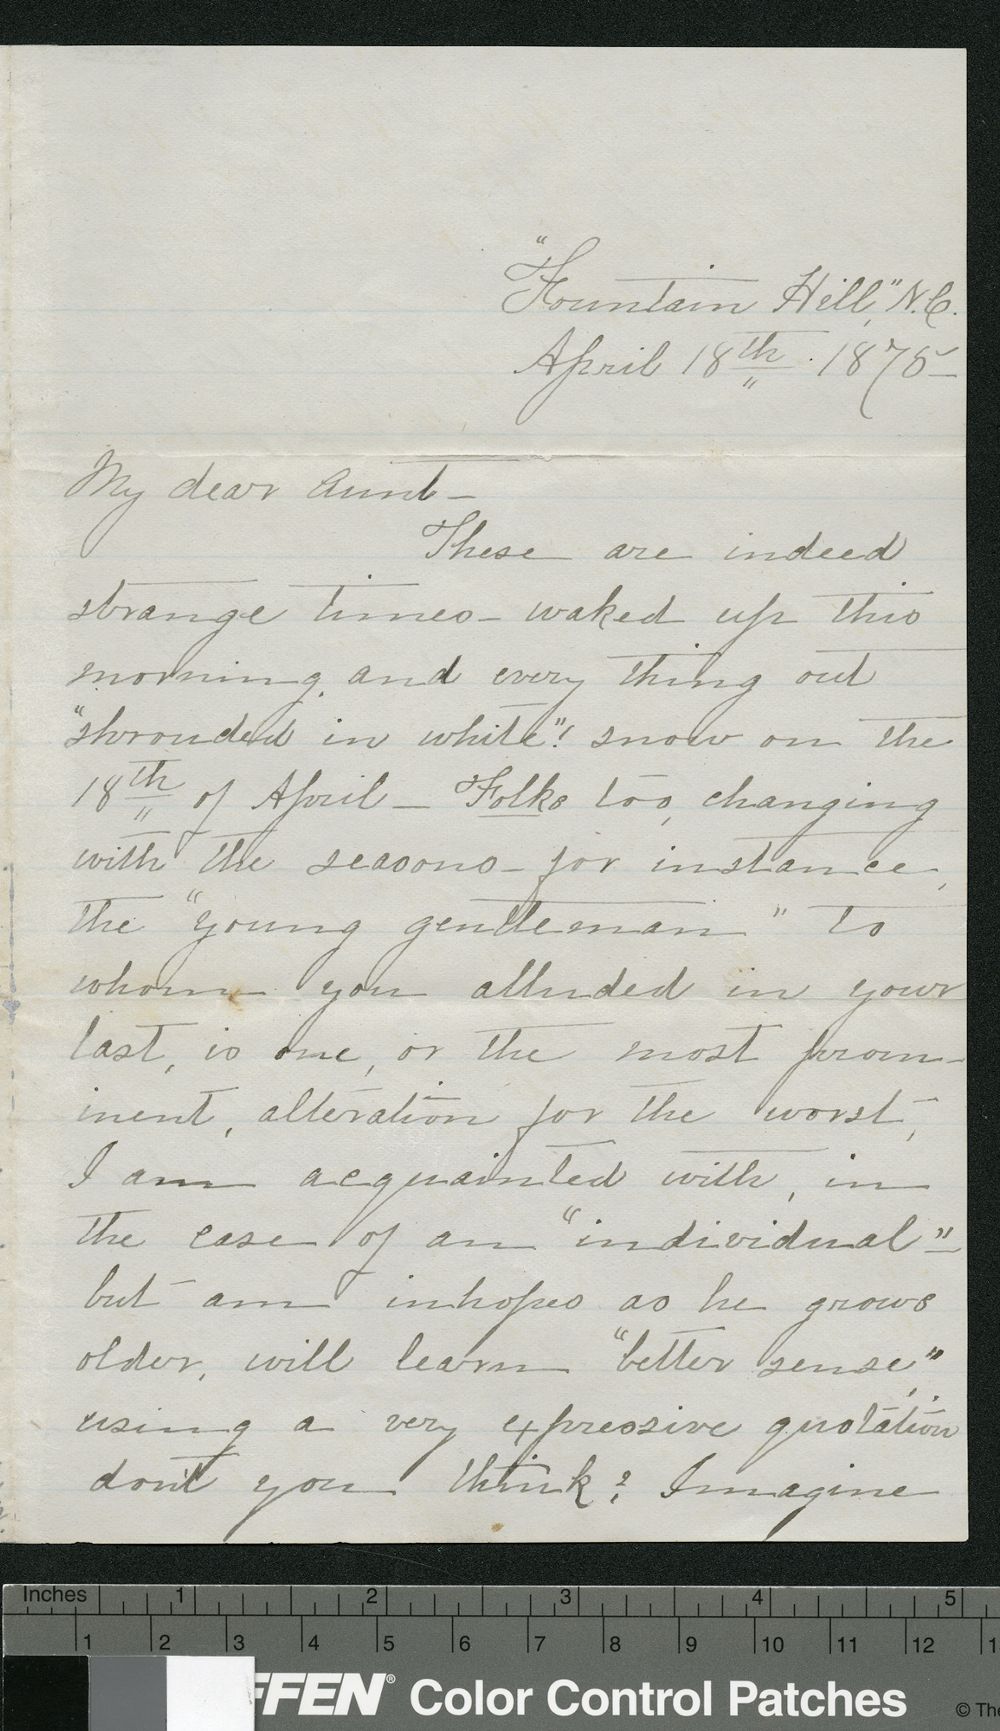 "Fountain Hill," N.C.
April 18th. 1875-
My dear Aunt-
These are indeed
strange times- waked up this
morning, and every thing out
"shrouded in white"! snow on the
18th of April- Folks too, changing
with the seasons- for instance,
the "young gentleman" to
whom you alluded in your
last, is one, or the most prom-
inent, alteration for the worst,
I am acquainted with, in
the case of an "individual"-
but am inhopes as he grows
older, will learn "better sense,"
using a very expressive quotation
don't you think? Imagine
Inches 1 2 3 4 5
1 2 3 4 5 6 7 8 9 10 11 12
FFEN® Color Control Patches
© The